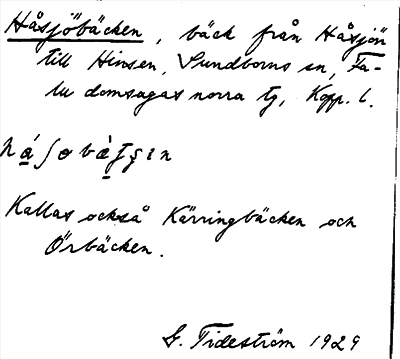 Håsjöbäcken, bäck från Håsjön
till Hinsen, Sundborns sn, Fa-
lu domsagas norra tg, Kopp. l.
Kallas också Kärringbäcken och
Örbäcken.
G. Tideström 1929